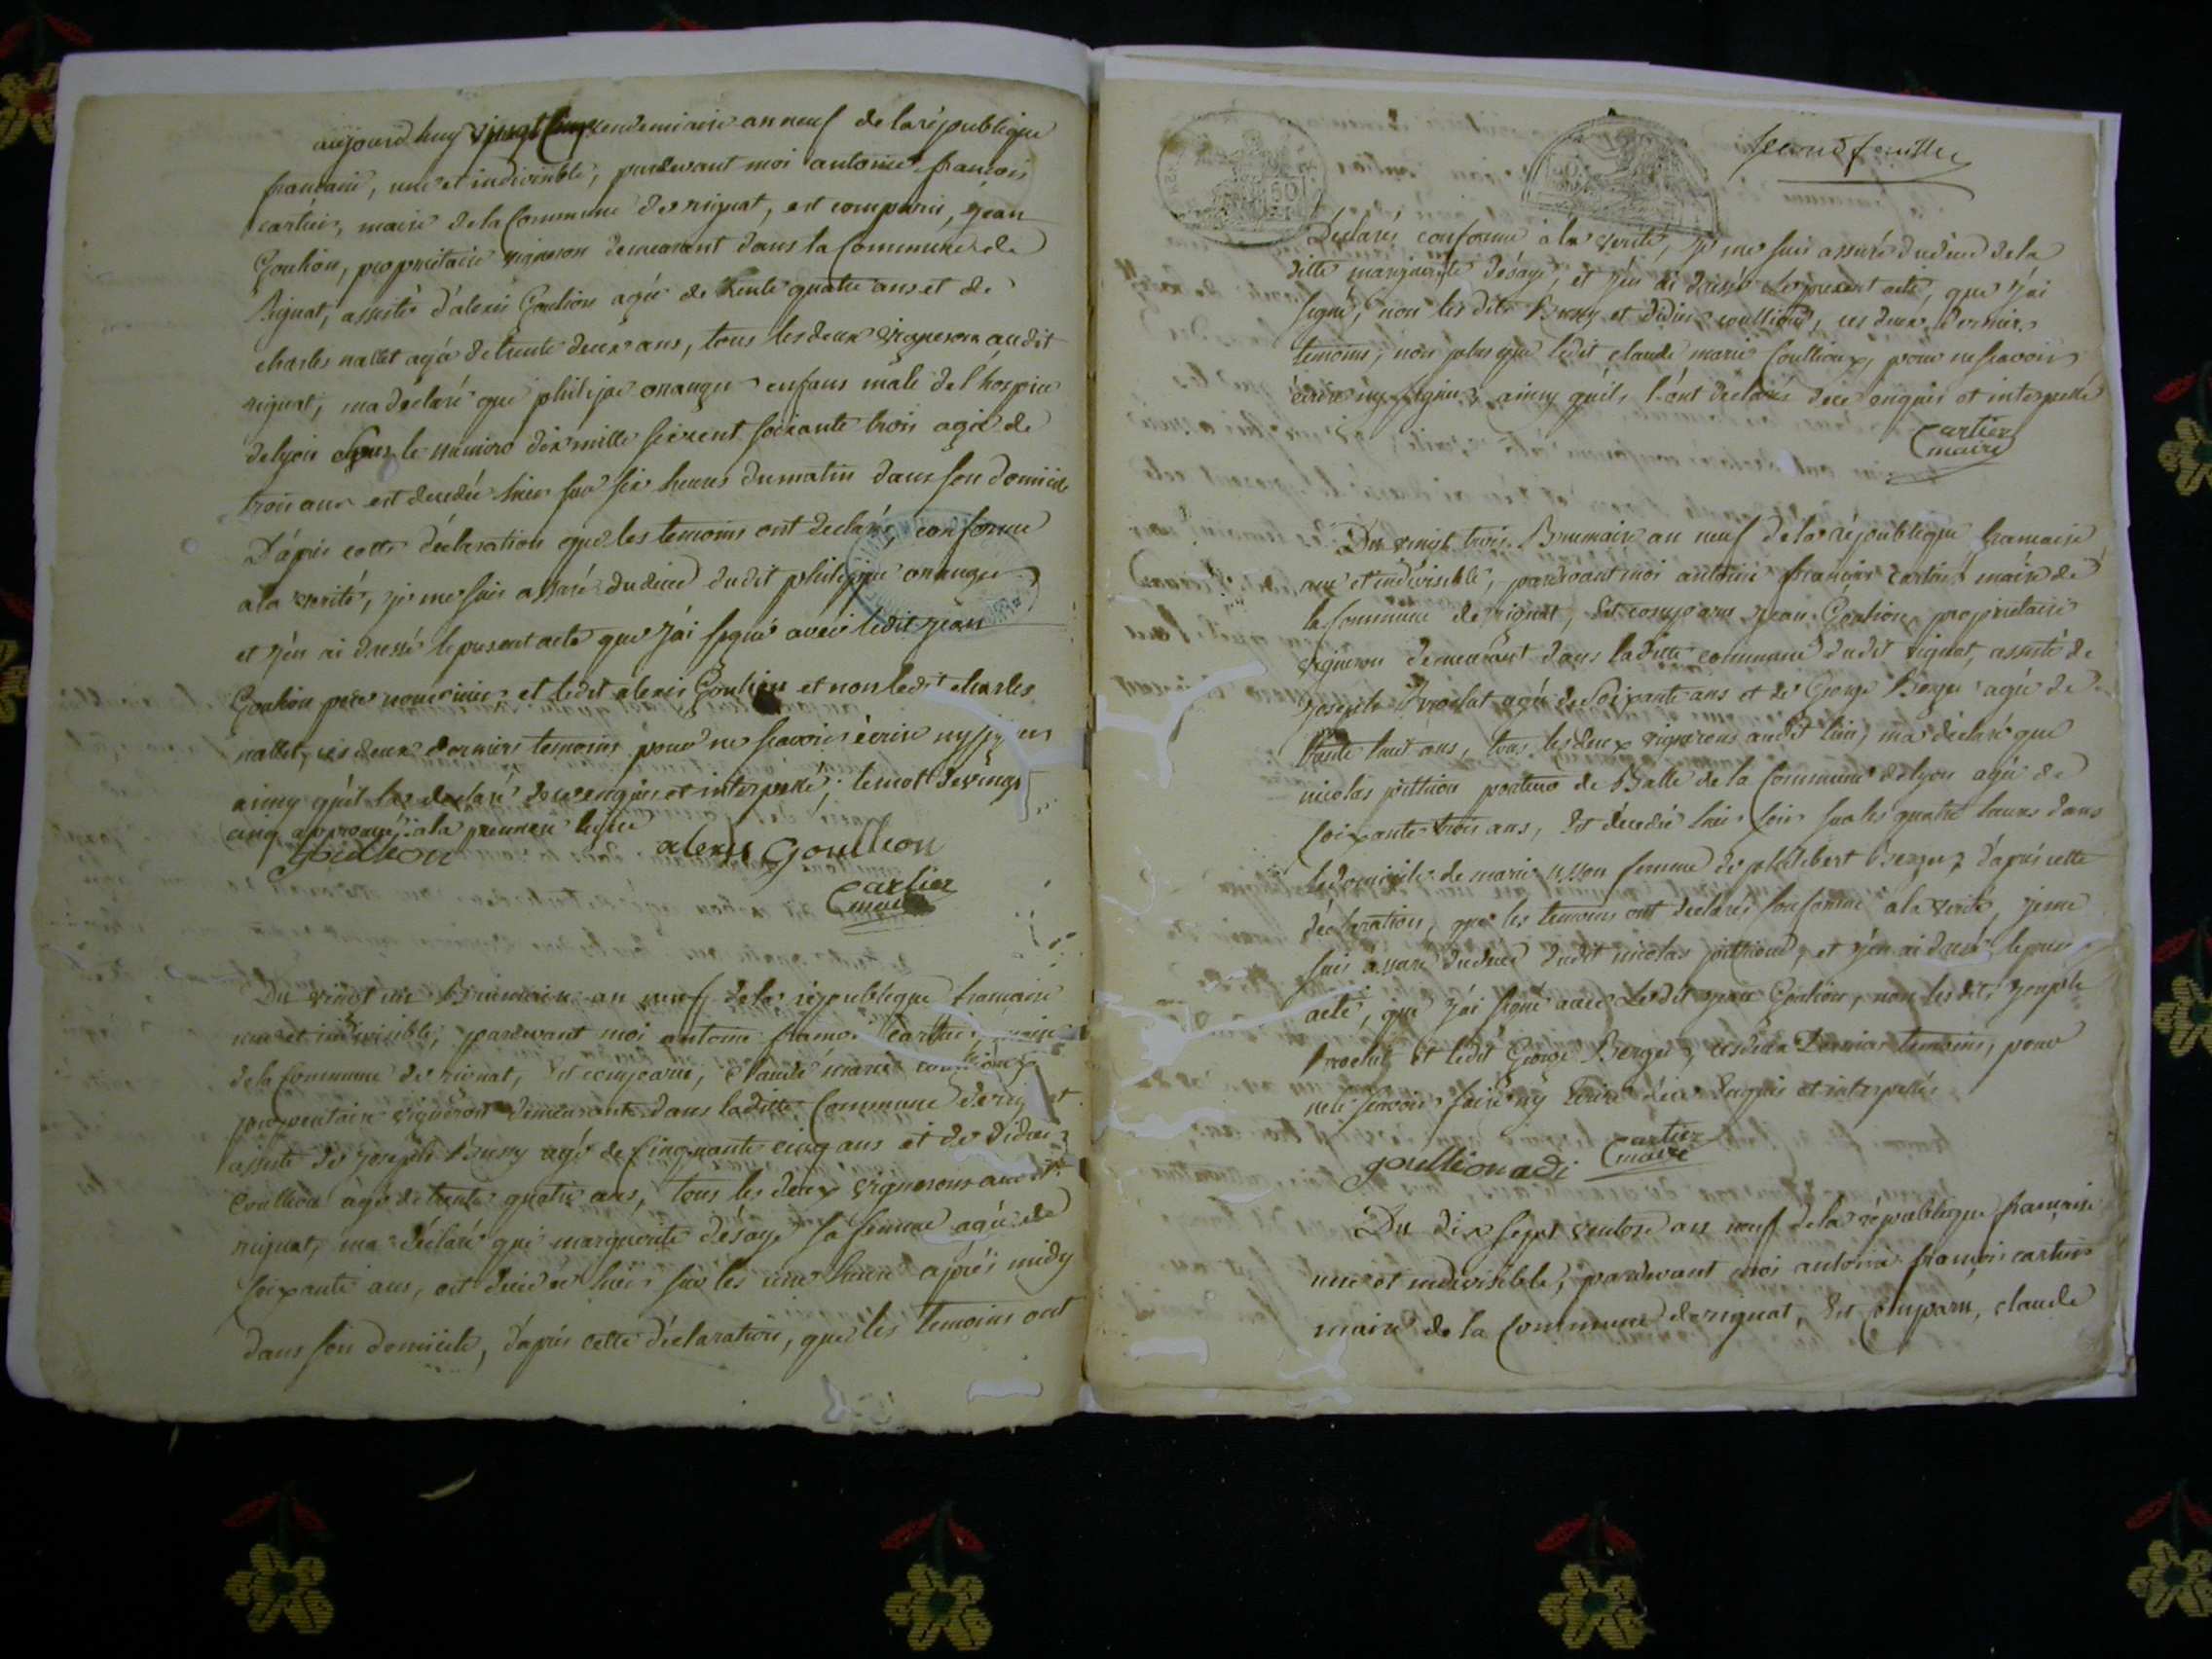 aujourd huy vingt cinq vendemiaire an neuf de la république
francaise, une et indivisible, pardevant moi antoine françois
cartier, maire de la Commune de rignat, est comparu, jean
Goulion, proprietaire vigneron demeurant dans la Commune de
Rignat, assisté d'alexis Goulion agé de trente quatre ans et de
charles nallet agé de trente deux ans, tous les deux vignerons au dit
rignat, m'a déclaré que philipe oranger enfans mâle de l'hospice
de lyon sous le numéro dix mille six cent soixante trois agé de
trois ans est décédé hier sur six heures du matin dans son domicile
D'aprés cette déclaration que les temoins ont declarés, conforme
a la verité, je me suis assuré du déces dudit philippe oranger
et j'en ai dressé le present acte que j'ai signé avec ledit jean
Goulion père nouricier et ledit alexis Goulion et non ledit charles
nallet, ces deux derniers temoins pour ne scavoir écrire ny signer
ainsy qu'il l'a declaré de ce enquis et interpellé; le mot de vingt
cinq approuvé a la premiere ligne
goullion alexis Goullion
Cartier
maire
Du vingt un Brumaire an neuf de la république francaise
une et indivisible, pardevant moi antoine francois cartier, maire
de la Commune de rignat, est comparu, Claude marie coullioux
propriétaire vigneron demeurant dans la ditte Commune de rignat
assisté de joseph Bruny agé de Cinquante cinq ans et de didier
Coullion agé de trente quatre ans, tous les deux vignerons audit
rignat, m'a déclaré que marguerite désaye sa femme agée de
soixante ans, est décédée hier sur les une heure après midy
dans son domicile, d'aprés cette déclaration, que les temoins ont
second feuillet
Déclarés conforme à la verité, je me suis assuré du déces de la
ditte marguerite désaye, et j'en ai dressé le present acte, que j'ai
signé, non les dits Bruny et didier coullioud, ces deux derniers
temoins, non plus que ledit claude marie Coullioux, pour ne scavoir
écrire ny signer ainsy qu'ils l'ont declarés de ce enquis et interpellé
Cartier
maire
Du vingt trois Brumaire an neuf de la république francaise
une et indivisible, pardevant moi antoine francois cartier maire de
la Commune de rignat, est comparu jean Goulion proprietaire
vigneron demeurant dans la ditte commune dudit rignat, assisté de
joseph agé de soixante ans et de George Berger agé de
trente huit ans, tous les deux vignerons audit lieu, m'a déclaré que
nicolas pitthion porteur de Balle de la Commune de lyon agé de
soixante trois ans, est décédé hier soir sur les quatre heures dans
le domicile de marie usson femme de philibert Berger, d'après cette
déclaration, que les temoins ont déclarés conforme a la verité, je me
suis assuré du déces dudit nicolas pitthion, et j'en ai dressé le present
acte, que j'ai signé avec ledit jean Goulion, non lesdits joseph
et ledit George Berger, ces deux Derniers temoins, pour
ne le scavoir faire ny écrire de ce enquis et interpellés
Cartier
goullion adj maire
Du dix sept ventose an neuf de la république française
une et indivisible, pardevant moi antoine françois cartier
maire de la Commune de rignat, est comparu, claude